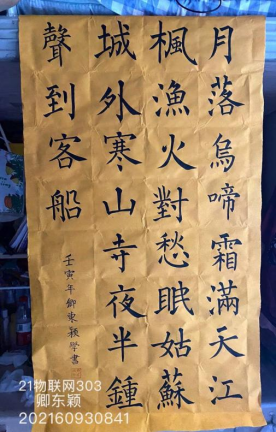 月落烏啼霜滿天江
楓漁火對愁眠姑蘇
城外寒山寺夜半鍾
聲到客船
壬寅年卿東穎學書
21物联网303
卿东颖
202160930841